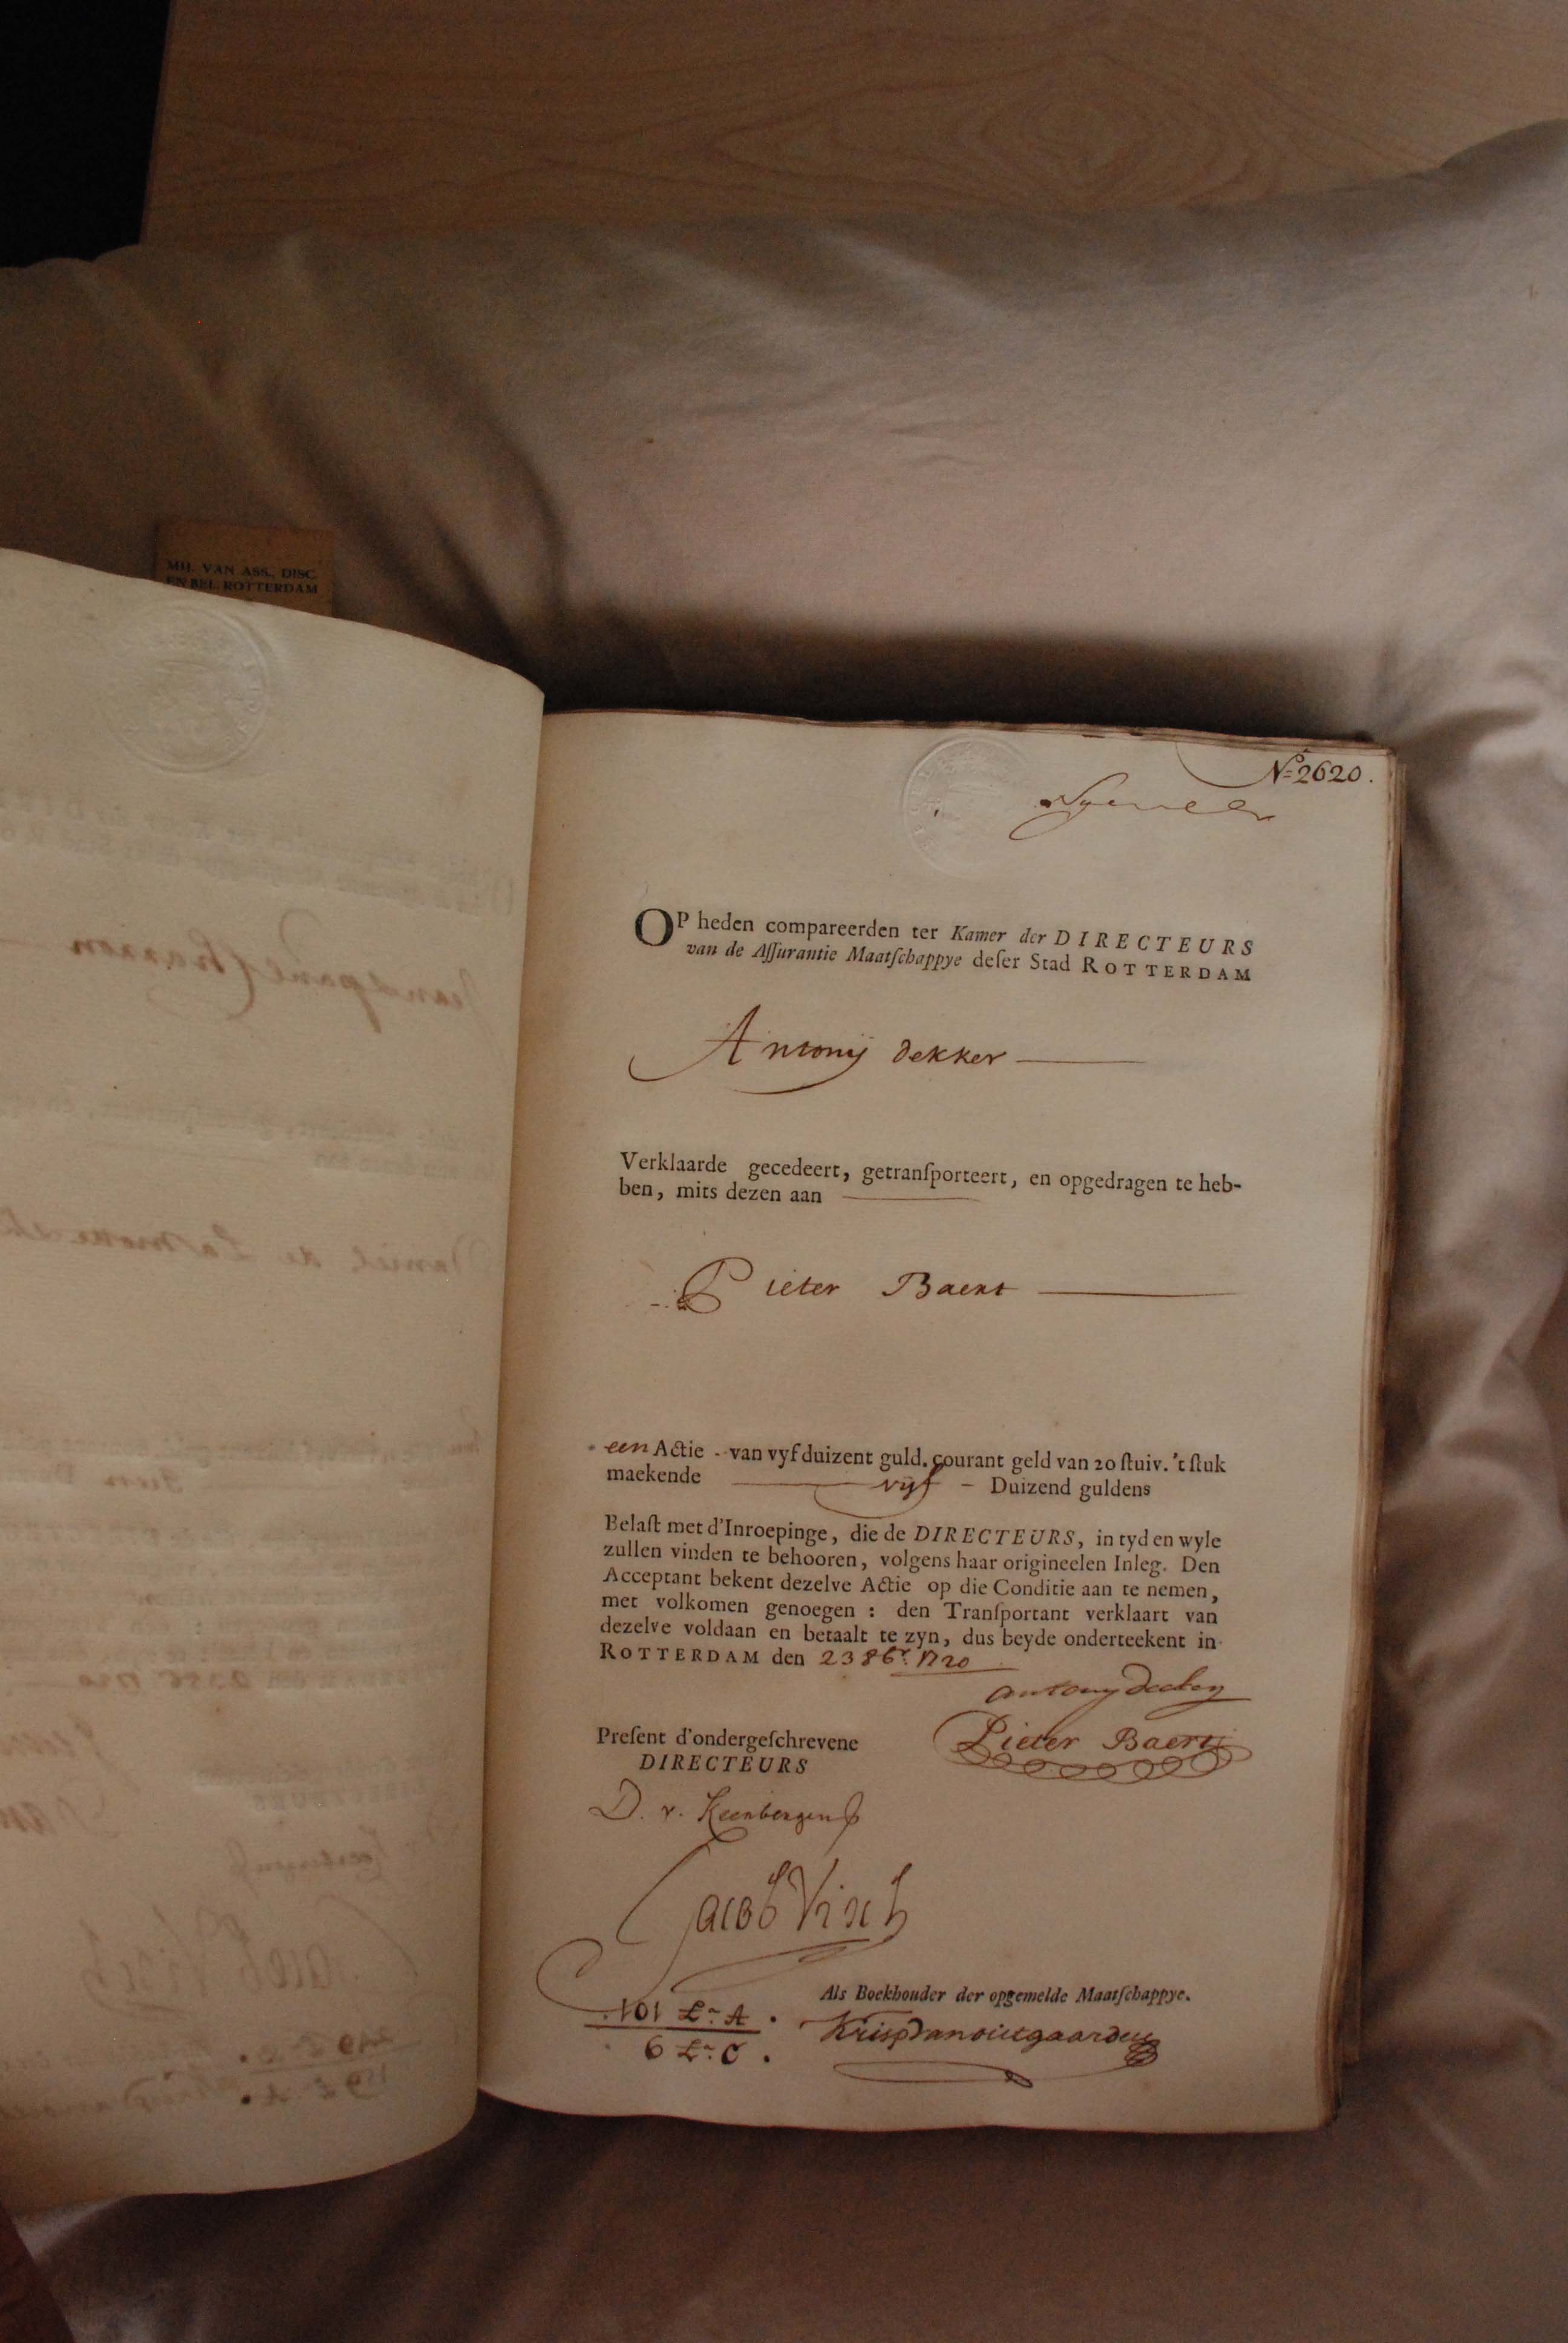 MIJ. VAN ASS., DISC.
EN BEL. ROTTERDAM
Nº 2620.
OP heden compareerden ter Kamer der DIRECTEURS
van de Aſſurantie Maatſchappye deſer Stad ROTTERDAM
Antonij dekker
Verklaarde gecedeert, getranſporteert, en opgedragen te heb-
ben, mits dezen aan
Pieter Baert
een Actie van vyf duizent guld. courant geld van 20 ſtuiv. 't ſtuk
maekende vijf Duizend guldens
Belaſt met d'Inroepinge, die de DIRECTEURS, in tyd en wyle
zullen vinden te behooren, volgens haar origineelen Inleg. Den
Acceptant bekent dezelve Actie op die Conditie aan te nemen,
met volkomen genoegen : den Tranſportant verklaart van
dezelve voldaan en betaalt te zyn, dus beyde onderteekent in
ROTTERDAM den 23 8br. 1720
Antony
Pieter Baert
Preſent d'ondergeſchrevene
DIRECTEURS
D. v.
Jacob Visch
Als Boekhouder der opgemelde Maatſchappye.
101 Lr. A.
6 Lr. C.